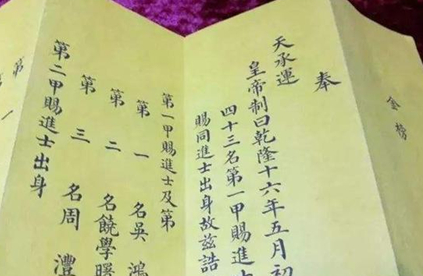 金榜
奉
天承運
皇帝制曰乾隆十六年五月初
四十三名第一甲賜進士
賜同進士出身故茲誥
第一甲賜進士及第
第一名吳鴻
第二名饒學曙
第三名周澧
第二甲賜進士出身
第一